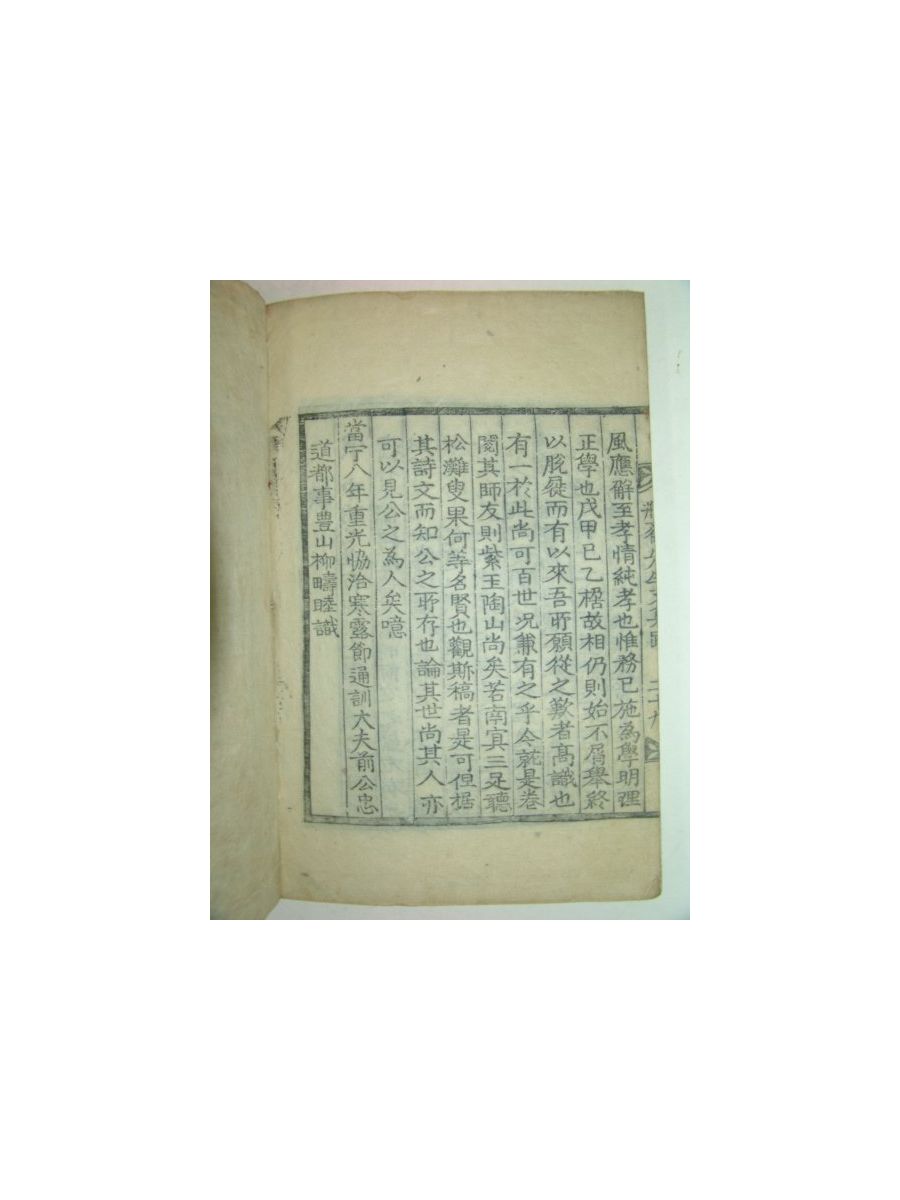 風應解至孝情純孝也惟務已施為學明理
正學也戊甲巳乙楛故相仍則始不屑舉終
以脫屣而有以來吾所願從之歎者高識也
有一於此尚可百世況兼有之乎今就是卷
閱其師友則紫玉陶山尚矣若南㝠三足聽
松灘叟果何等名賢也觀斯稿者是可但据
其詩文而知公之所存也論其世尚其人亦
可以見公之為人矣噫
當宁八年重光恊洽寒露節通訓大夫前公忠
道都事豊山柳疇睦識